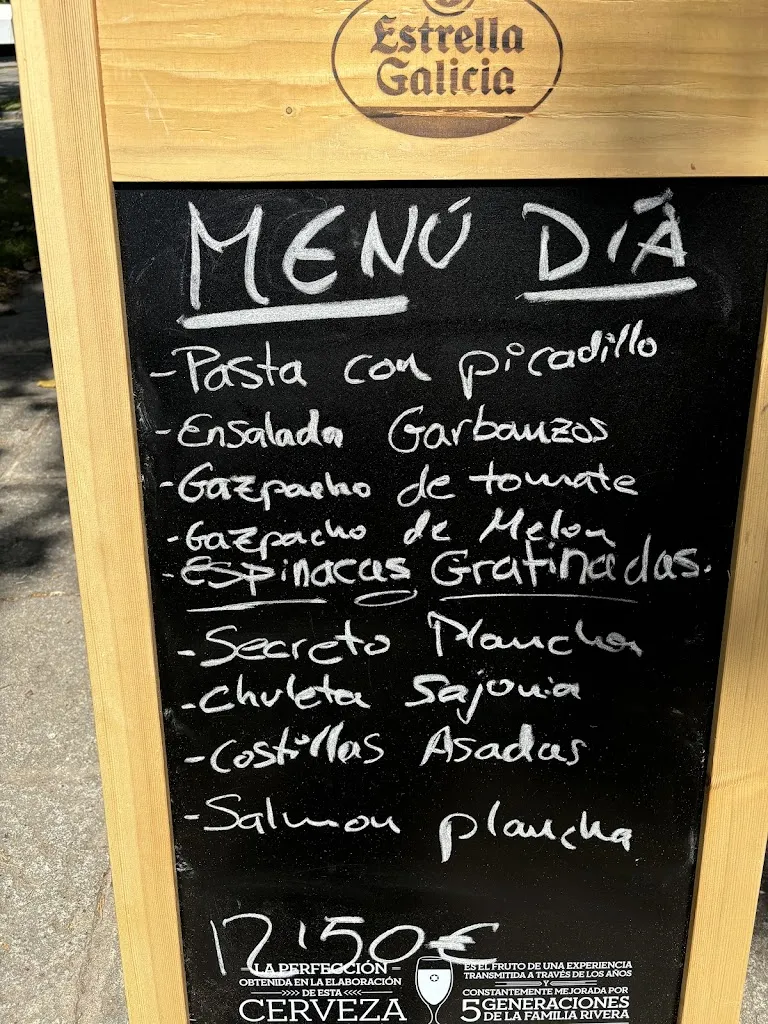 Estrella
Galicia
MENÚ DÍA
-Pasta con picadillo
-Ensalada Garbanzos
-Gazpacho de tomate
-Gazpacho de Melon
-Espinacas Gratinadas.
-Secreto Plancha
-Chuleta Sajonia
-Costillas Asadas
-Salmon plancha
12'50€
LA PERFECCIÓN
OBTENIDA EN LA ELABORACIÓN
DE ESTA
CERVEZA
ES EL FRUTO DE UNA EXPERIENCIA
TRANSMITIDA A TRAVÉS DE LOS AÑOS
Y
CONSTANTEMENTE MEJORADA POR
5 GENERACIONES
DE LA FAMILIA RIVERA